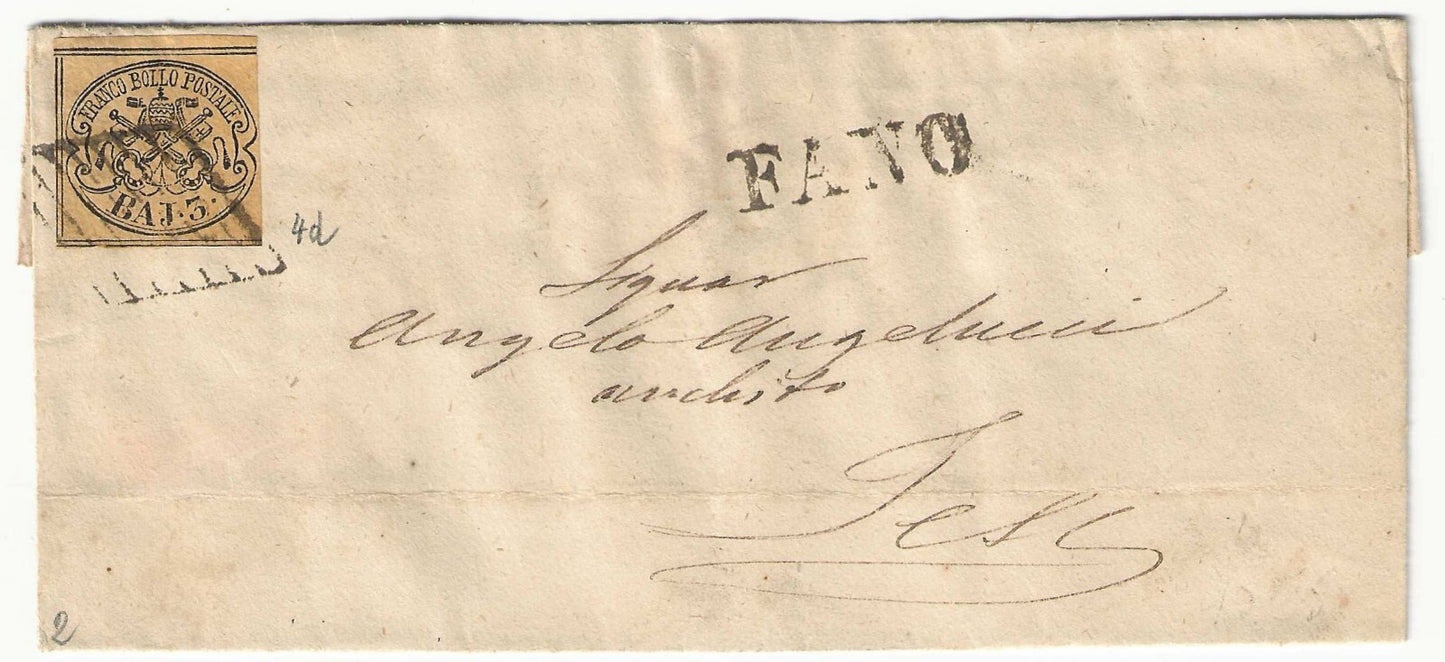 FRANCO BOLLO POSTALE
BAJ·3·
4d
FANO
Signor
Angelo Angelucci
Jesi
2